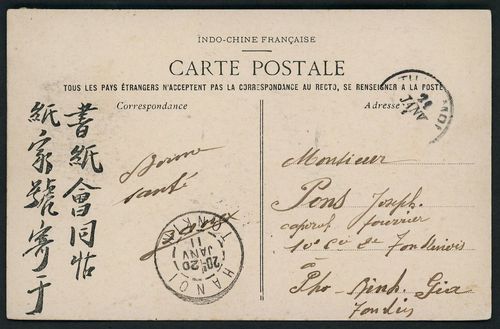 INDO-CHINE FRANÇAISE
CARTE POSTALE
TOUS LES PAYS ÉTRANGERS N'ACCEPTENT PAS LA CORRESPONDANCE AU RECTO, SE RENSEIGNER A LA POSTE
Correspondance
Adresse
書紙會同
紙家號寄于
Bonne
santé
HANOI
TONKIN
20 JANV
11
20
JANV
Monsieur
Pons Joseph
caporal fourrier
10e Cie de Tonkinois
Pho Ninh Gia
Tonkin